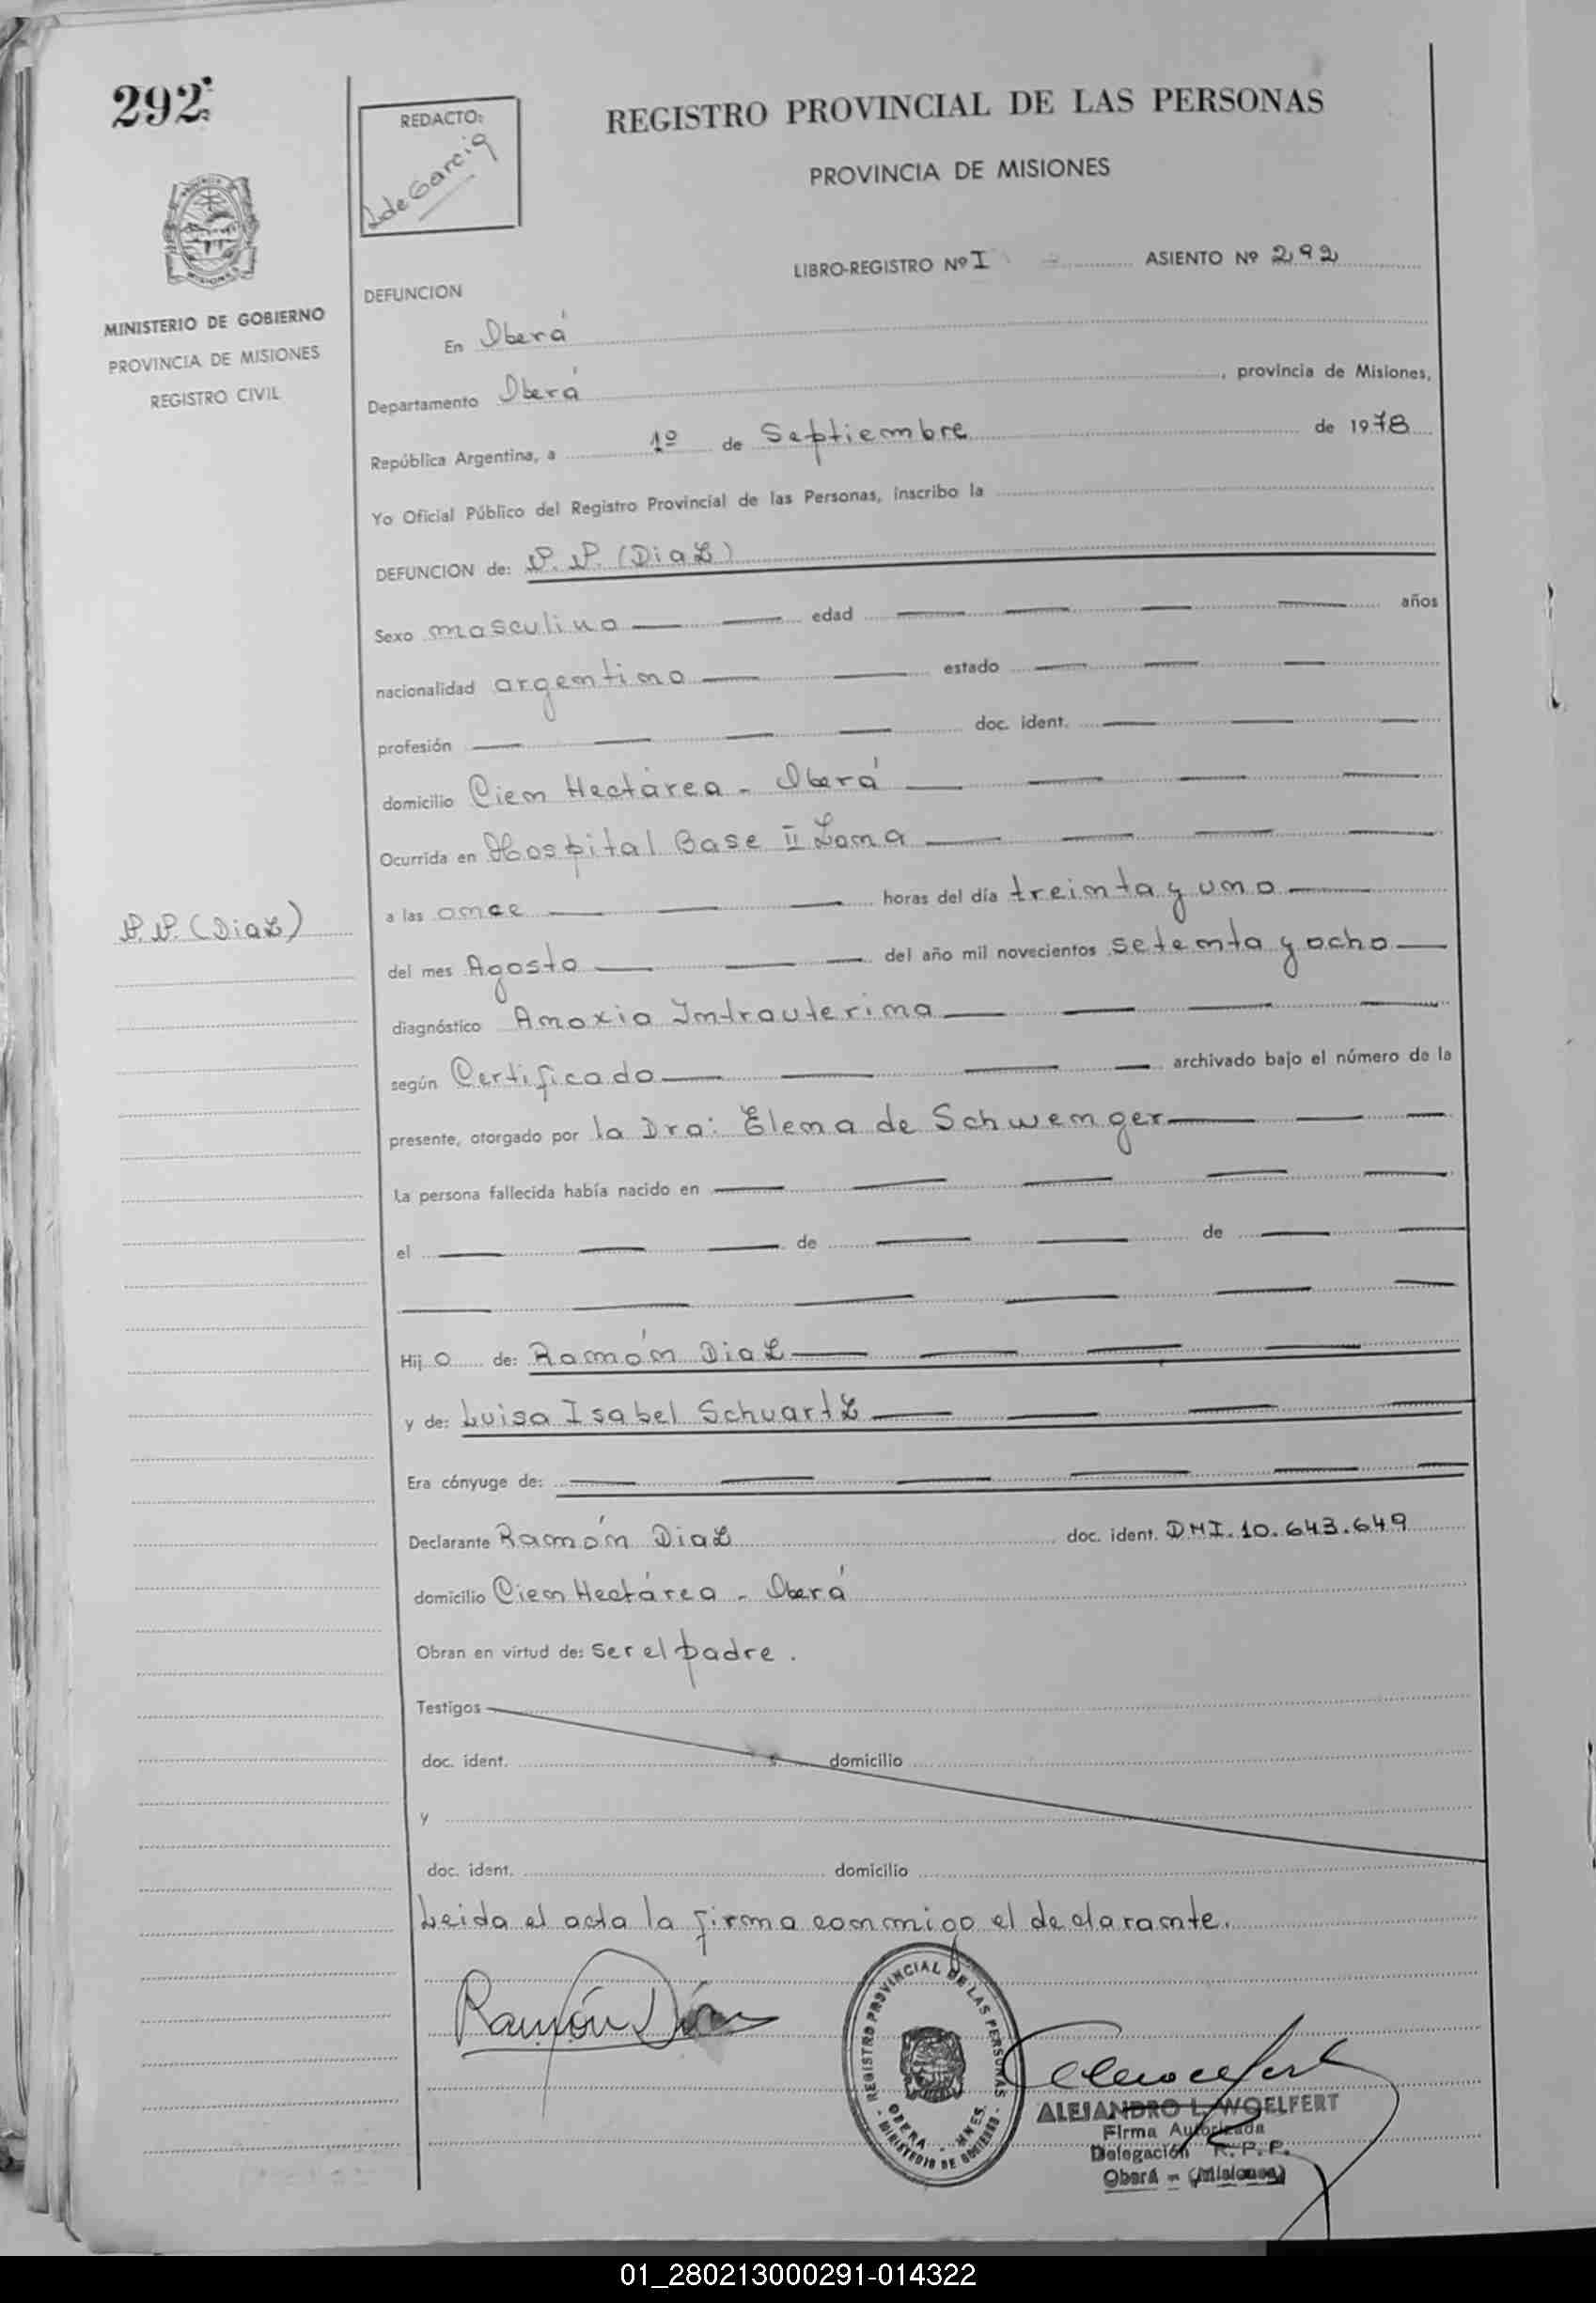 292
REDACTO:
L de Garcia
REGISTRO PROVINCIAL DE LAS PERSONAS
PROVINCIA DE MISIONES
LIBRO-REGISTRO Nº I ASIENTO Nº 292
MINISTERIO DE GOBIERNO
PROVINCIA DE MISIONES
REGISTRO CIVIL
DEFUNCION
En Oberá
Departamento Oberá, provincia de Misiones,
República Argentina, a 1º de Septiembre de 1978
Yo Oficial Público del Registro Provincial de las Personas, inscribo la
DEFUNCION de: N.N. (Diaz)
Sexo masculino edad años
nacionalidad argentino estado
profesión doc. ident.
domicilio Cien Hectárea - Oberá
Ocurrida en Hospital Base II Zona
N.N. (Diaz)
a las once horas del día treinta y uno
del mes Agosto del año mil novecientos setenta y ocho
diagnóstico Anoxia Intrauterina
según Certificado archivado bajo el número de la
presente, otorgado por la Dra: Elena de Schwenger
La persona fallecida había nacido en
el de de
Hijo de: Ramón Diaz
y de: Luisa Isabel Schuartz
Era cónyuge de:
Declarante Ramón Diaz doc. ident. DNI. 10.643.649
domicilio Cien Hectárea - Oberá
Obran en virtud de: ser el padre.
Testigos
doc. ident. domicilio
y
doc. ident. domicilio
Leida el acta la firma conmigo el declarante.
Ramón Díaz
REGISTRO PROVINCIAL DE LAS PERSONAS
OBERA - MNES.
- MINISTERIO DE GOBIERNO -
ALEJANDRO L. WOELFERT
Firma Autorizada
Delegación R. P. P.
Oberá - (Misiones)
01_280213000291-014322